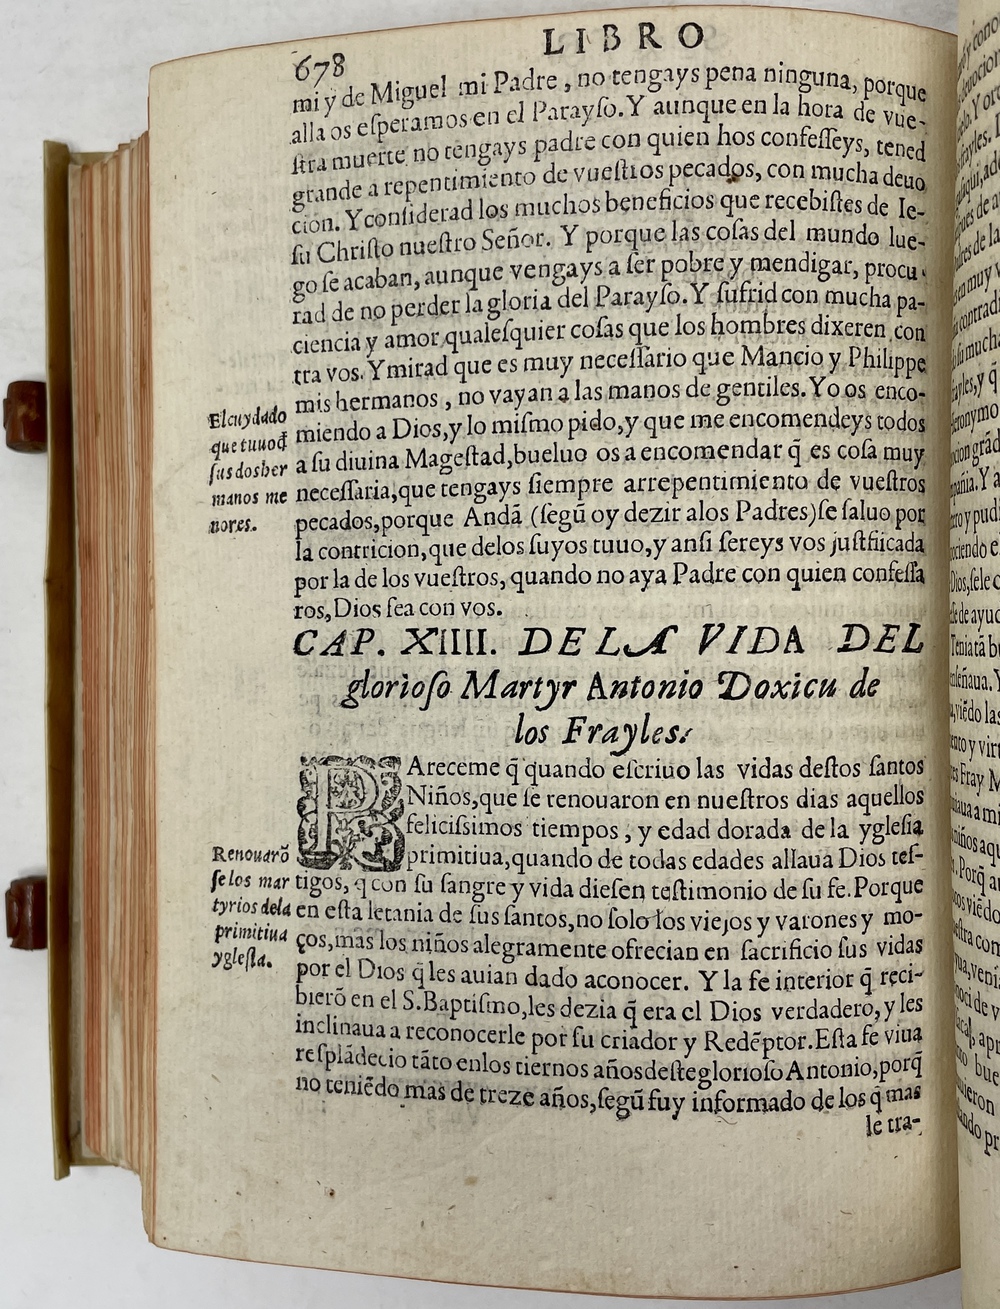 678
LIBRO
mi y de Miguel mi Padre, no tengays pena ninguna, porque
alla os eſperamos en el Parayſo. Y aunque en la hora de vue-
ſtra muerte no tengays padre con quien hos confeſſeys, tened
grande a repentimiento de vueſtros pecados, con mucha deuo
cion. Y conſiderad los muchos beneficios que recebiſtes de Ie-
ſu Chriſto nueſtro Señor. Y porque las coſas del mundo lue-
go ſe acaban, aunque vengays a ſer pobre y mendigar, procu-
rad de no perder la gloria del Parayſo. Y ſufrid con mucha pa-
ciencia y amor qualeſquier coſas que los hombres dixeren con
tra vos. Y mirad que es muy neceſſario que Mancio y Philippe
mis hermanos, no vayan a las manos de gentiles. Yo os enco-
miendo a Dios, y lo miſmo pido, y que me encomendeys todos
a ſu diuina Mageſtad, bueluo os a encomendar q̃ es coſa muy
neceſſaria, que tengays ſiempre arrepentimiento de vueſtros
pecados, porque Andã (ſegũ oy dezir alos Padres) ſe ſaluo por
la contricion, que delos ſuyos tuuo, y anſi ſereys vos juſtfiicada
por la de los vueſtros, quando no aya Padre con quien confeſſa
ros, Dios ſea con vos.
El cuydado
que tuuo d̃
ſus dos her
manos me
nores.
CAP. XIIII. DE LA VIDA DEL
glorioſo Martyr Antonio Doxicu de
los Frayles.
PAreceme q̃ quando eſcriuo las vidas deſtos ſantos
Niños, que ſe renouaron en nueſtros dias aquellos
feliciſsimos tiempos, y edad dorada de la ygleſia
primitiua, quando de todas edades allaua Dios teſ-
tigos, q con ſu ſangre y vida dieſen teſtimonio de ſu fe. Porque
en eſta letania de ſus ſantos, no ſolo los viejos y varones y mo-
ços, mas los niños alegramente ofrecian en ſacrificio ſus vidas
por el Dios q̃ les auian dado aconocer. Y la fe interior q̃ reci-
bierõ en el S. Baptiſmo, les dezia q̃ era el Dios verdadero, y les
inclinaua a reconocerle por ſu criador y Redẽptor. Eſta fe viua
reſplãdecio tãto enlos tiernos años deſte glorioſo Antonio, porq̃
no teniẽdo mas de treze años, ſegũ fuy informado de los q̃ mas
le tra-
Renouarõ
ſe los mar
tyrios dela
primitiua
ygleſia.